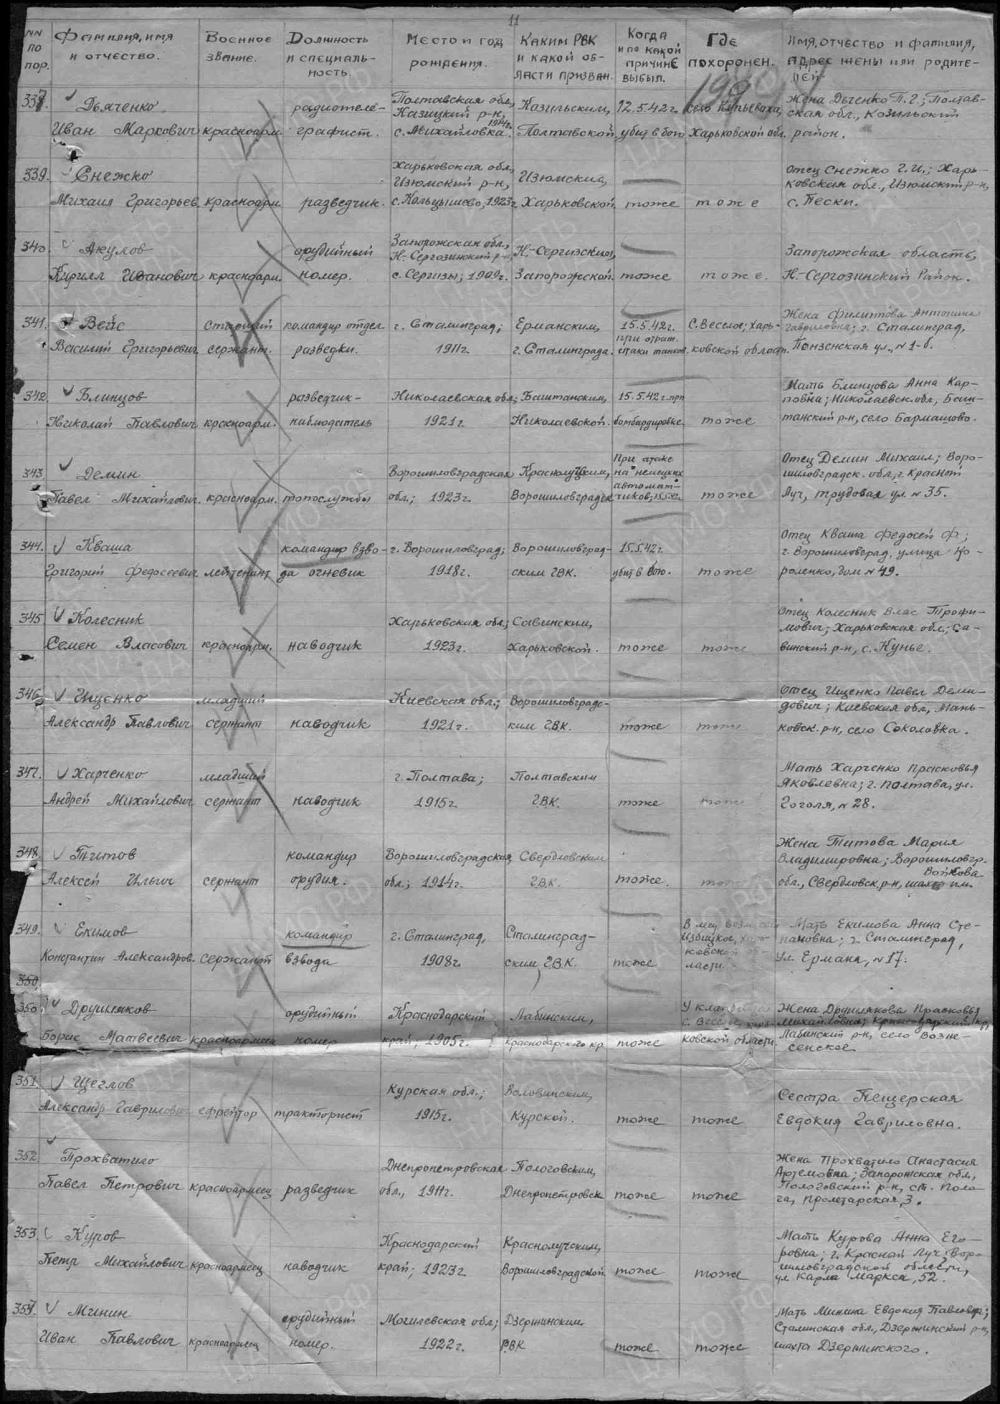 11
NN по пор. | Фамилия, имя и отчество. | Военное звание. | Должность и специальность. | Место и год рождения. | Каким РВК и какой области призван. | Когда и по какой причине выбыл. | Где похоронен. | Имя, отчество и фамилия, адрес жены или родителей
199
Дьяченко Иван Маркович | красноарм. | радиотелеграфист. | Полтавская обл., р-н, с. Михайловка. 1914г. | Полтавской | 12.5.42г. убит в бою | Харьковской обл. | Жена П.Г.; Полтавская обл., район.
339. Снежко Михаил Григорьев. | красноарм. | разведчик. | Харьковская обл., Изюмский р-н, 1923г. | Изюмским, Харьковской | тоже | тоже | Отец Снежко Г.И.; Харьковская обл., Изюмский р-н, с. Пески.
340. Акулов Кирилл Иванович | красноарм. | орудийный номер. | Запорожская обл., Н-Сергозинский р-н, 1909г. | Запорожской | тоже | тоже. | Запорожская область, Н-Сергозинский Район.
341. Вейс Василий Григорьевич | старший сержант. | командир отдел разведки. | г. Сталинград; 1911г. | Ерманским, г. Сталинграда. | 15.5.42г. при отраж. атаки танков. | с. Веселое; Харьковской област. | Жена Филиппова Антонина Гавриловна; г. Сталинград, Пензенская ул., N 1-б.
342. Блинцов Николай Павлович | красноарм. | разведчик-наблюдатель | Николаевская обл; 1921г. | Баштанским, Николаевской. | 15.5.42г. при бомбардировке. | тоже | Мать Блинцова Анна Карповна; Николаевск.обл, Баштанский р-н, село Бармашово.
343 Демин Павел Михайлович | красноарм. | Ворошиловградская обл; 1923г. | Краснолучским, Ворошиловградск | При атаке на немецких автоматчиков, | тоже | Отец Демин Михаил; Ворошиловградск. обл, г. Красный Луч, трудовая ул N 35.
344. Кваша Григорий Федосеевич | лейтенант | командир взвода огневик | г. Ворошиловград; 1918г. | Ворошиловградским ГВК. | 15.5.42г. убит в бою. | тоже | Отец Кваша Федосей Ф; г. Ворошиловград, улица Короленко, дом N 49.
345 Колесник Семен Власович | красноарм. | наводчик | Харьковская обл; 1923г. | Савинским, Харьковской. | тоже | тоже | Отец Колесник Влас Трофимович; Харьковская обл; Савинский р-н, с. Кунье.
346 Ищенко Александр Павлович | младший сержант | наводчик | Киевская обл.; 1921г. | Ворошиловградским ГВК. | тоже | тоже | Отец Ищенко Павел Демидович; Киевская обл, Маньковск. р-н, село Соколовка.
347. Харченко Андрей Михайлович | младший сержант | наводчик | г. Полтава; 1915г. | Полтавским ГВК. | тоже | тоже | Мать Харченко Прасковья Яковлевна; г. Полтава, ул. Гоголя, N 28.
348 Титов Алексей Ильич | сержант | командир орудия. | Ворошиловградская обл; 1914г. | Свердловским ГВК. | тоже. | тоже | Жена Титова Мария Владимировна; Ворошиловгр. обл., Свердловск. р-н, шахта им. Войкова
349. Екимов Константин Александров. | сержант | командир взвода | г. Сталинград, 1908г | Сталинградским, ГВК. | тоже | Избицкое, Харьковской области. | Мать Екимова Анна Степановна; г. Сталинград, ул. Ермана, N 17.
350
350. Друшляков Борис Матвеевич | красноармеец | орудийный номер | Краснодарский край, 1905г. | Лабинским, Краснодарского кр | тоже | У кладбища с. Веселое, Харьковской области. | Жена Друшлякова Прасковья Михайловна; Краснодарский кр, Лабинский р-н, село Вознесенское
351 Щеглов Александр Гаврилович | ефрейтор | тракторист | Курская обл.; 1915г. | Воловинским, Курской. | тоже | тоже | Сестра Пещерская Евдокия Гавриловна.
352 Прохватило Павел Петрович | красноармеец | разведчик | Днепропетровская обл, 1911г. | Пологовским, Днепропетровск | тоже | тоже | Жена Прохватило Анастасия Артемовна; Запорожская обл, Пологовский р-н, ст. Полога, пролетарская, 3.
353 Куров Петр Михайлович | красноармеец | наводчик | Краснодарский край; 1923г | Краснолучским, Ворошиловградской | тоже | тоже | Мать Курова Анна Егоровна; г. Красный Луч Ворошиловградской области, ул. Карла Маркса, 52.
354 Минин Иван Павлович | красноармеец | орудийный номер. | Могилевская обл; 1922г. | Дзержинским РВК | тоже | тоже | Мать Минина Евдокия Павловн.; Сталинская обл., Дзержинский р-н, шахта Дзержинского.